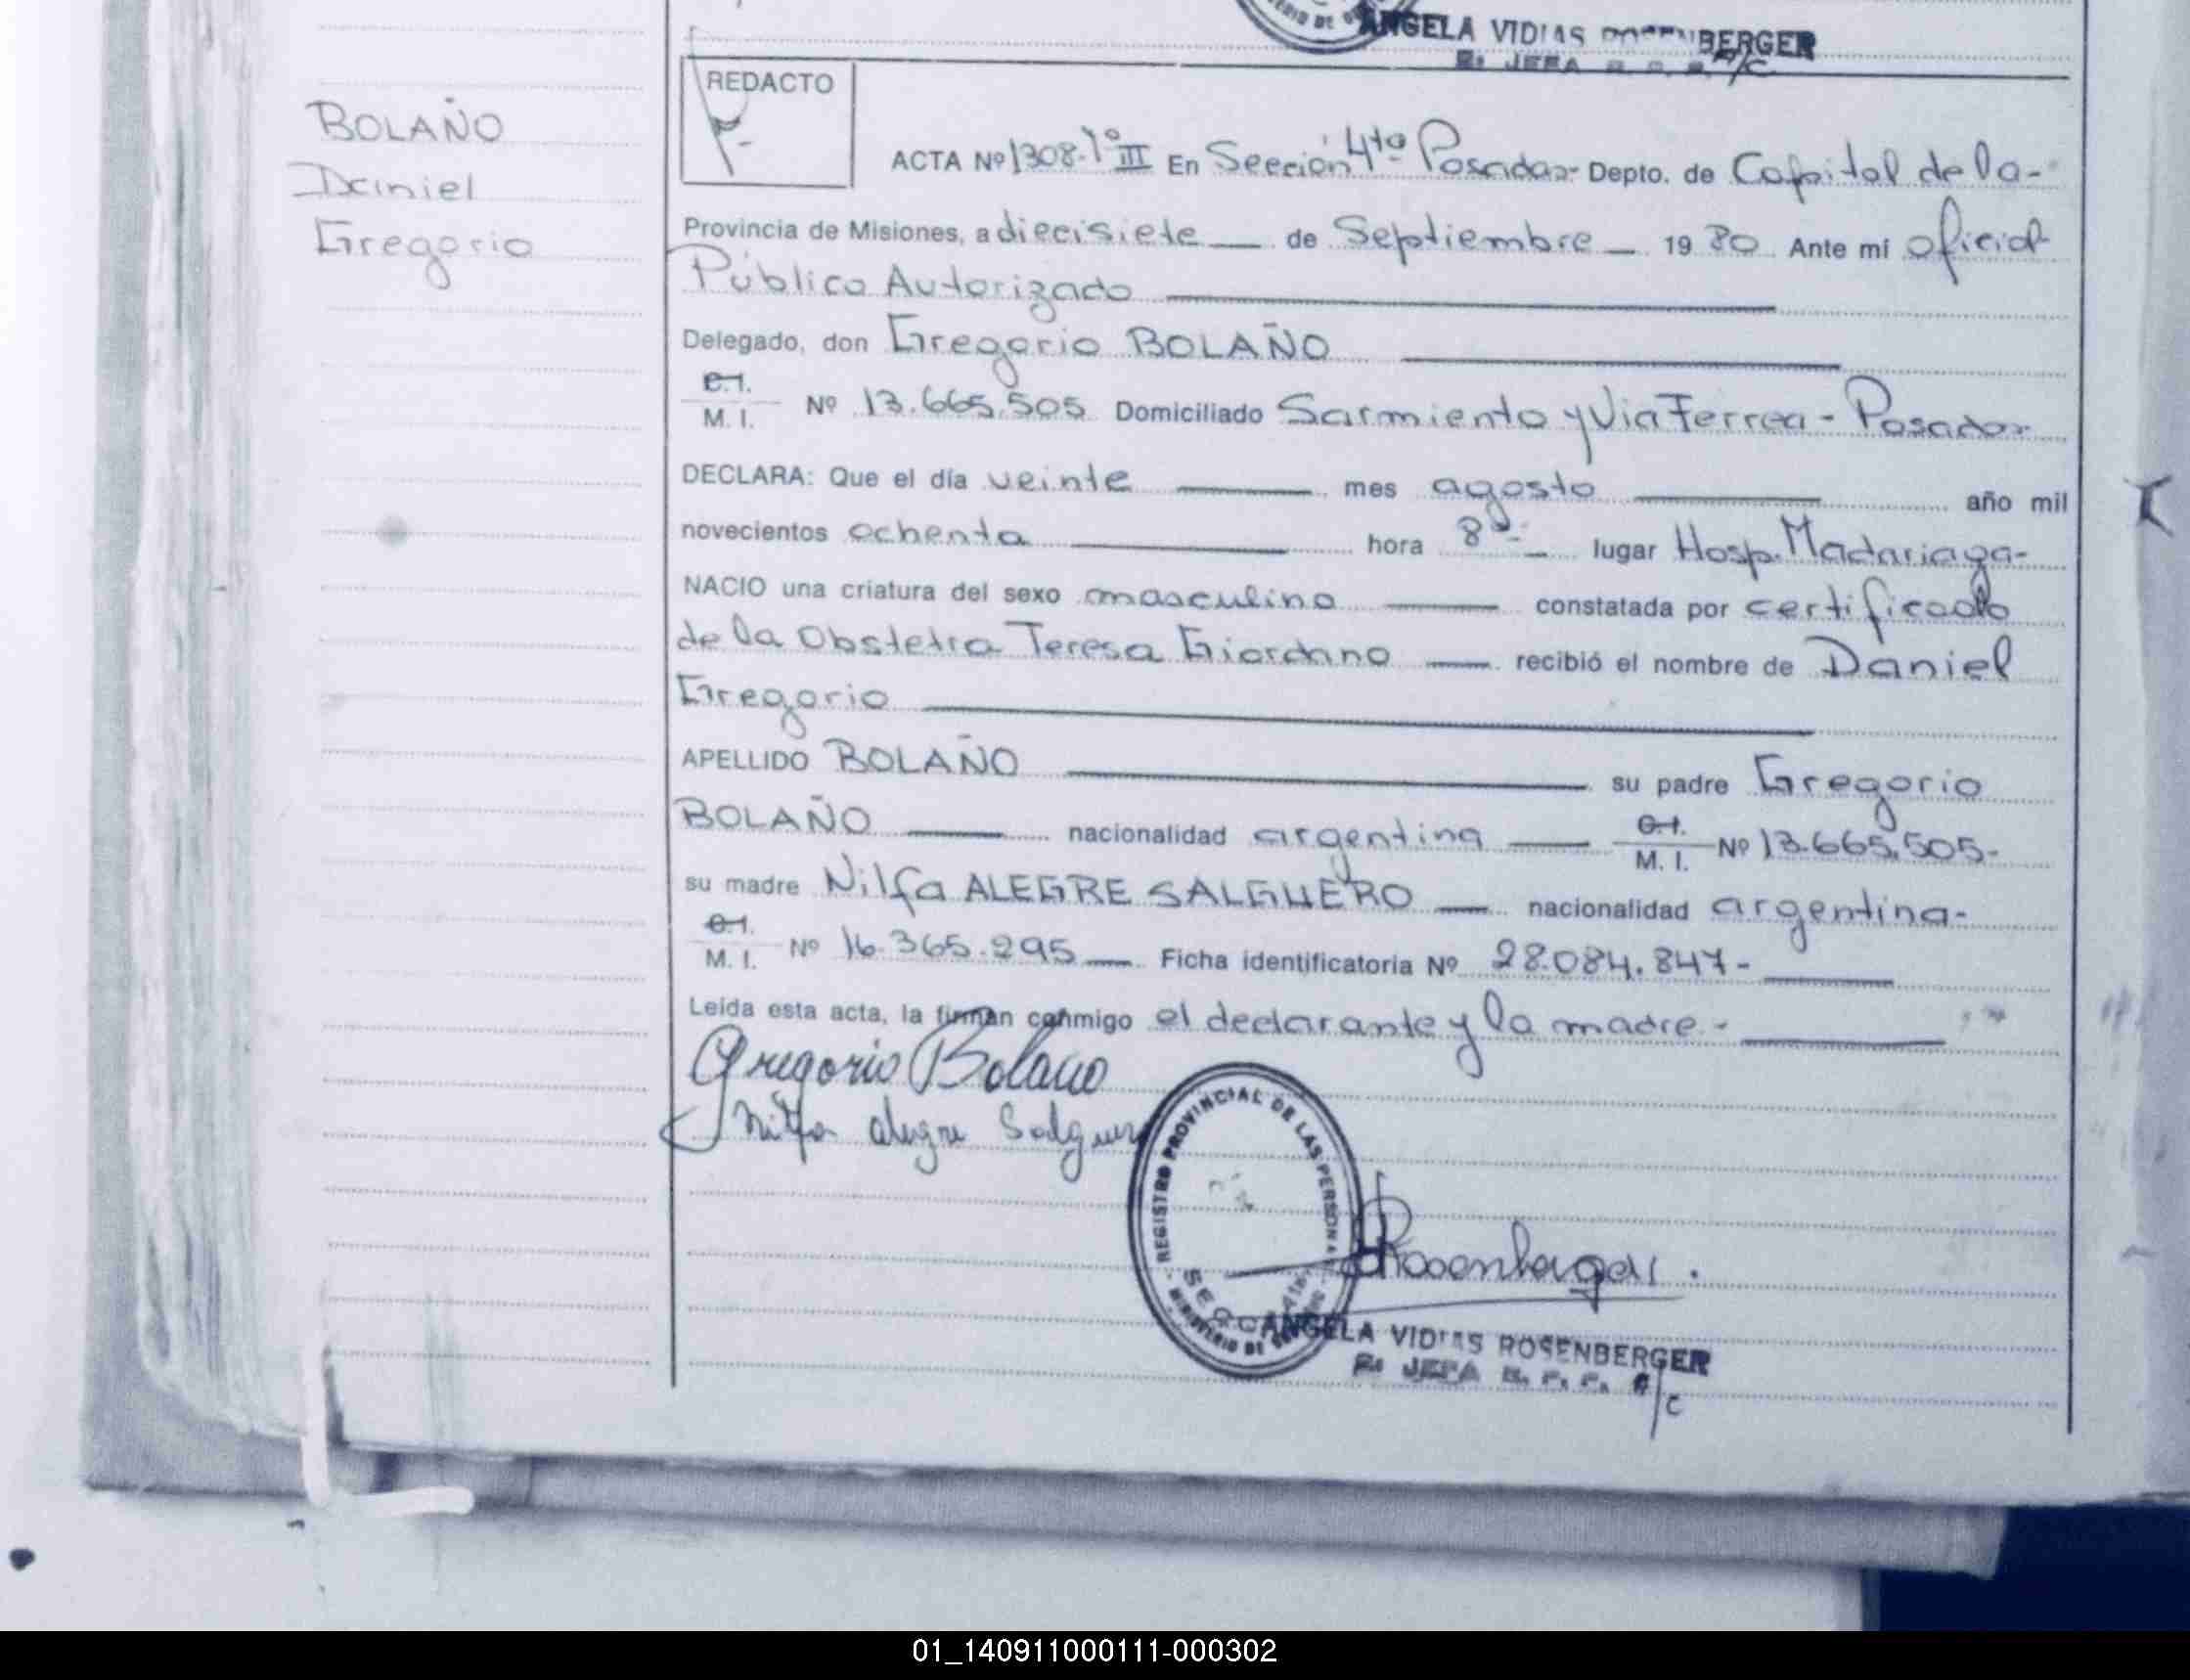 ANGELA VIDIAS ROSENBERGER
REDACTO
BOLAÑO
Daniel
Gregorio
ACTA Nº 1308-Tº III En Sección 4ta Posadas- Depto. de Capital de la-
Provincia de Misiones, a diecisiete de Septiembre 19 80 Ante mí oficial
Público Autorizado
Delegado, don Gregorio BOLAÑO
C.I.
M. I. Nº 13.665.505 Domiciliado Sarmiento y Via Ferrea - Posadas
DECLARA: Que el día veinte mes agosto año mil
novecientos ochenta hora 8 lugar Hosp. Madariaga-
NACIO una criatura del sexo masculino constatada por certificado
de la Obstetra Teresa Giordano recibió el nombre de Daniel
Gregorio
APELLIDO BOLAÑO su padre Gregorio
BOLAÑO nacionalidad argentina C.I.
M. I. Nº 13.665.505-
su madre Nilfa ALEGRE SALGUERO nacionalidad argentina-
C.I.
M. I. Nº 16.365.295 Ficha identificatoria Nº 28.084.847-
Leída esta acta, la firman conmigo el declarante y la madre-
Gregorio Bolaño
Nilfa Alegre Salguero
REGISTRO PROVINCIAL DE LAS PERSONAS
MINISTERIO DE
Rosenberger.
ANGELA VIDIAS ROSENBERGER
JEFA
/c
01_140911000111-000302